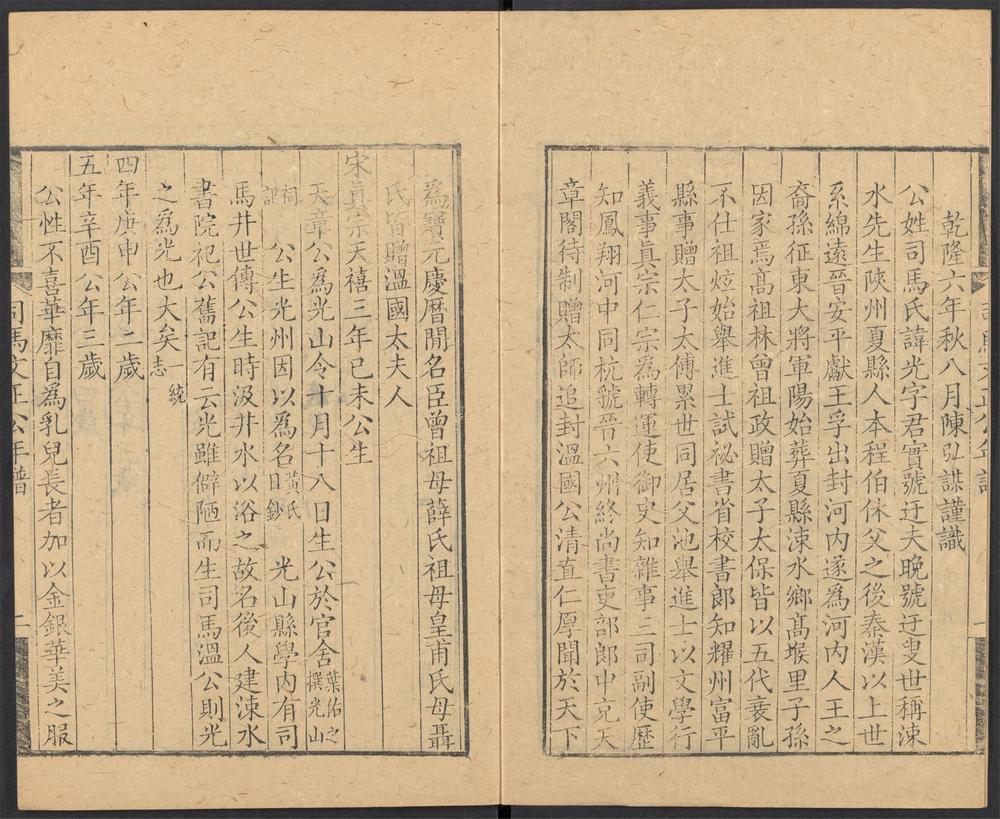 乾隆六年秋八月陳弘謀謹識
公姓司馬氏諱光字君實號迂夫晚號迂叟世稱涑
水先生陝州夏縣人本程伯休父之後秦漢以上世
系綿遠晉安平獻王孚出封河內遂為河內人王之
裔孫征東大將軍陽始葬夏縣涑水鄉高堠里子孫
因家焉高祖林曾祖政贈太子太保皆以五代衰亂
不仕祖炫始舉進士試祕書省校書郎知耀州富平
縣事贈太子太傅累世同居父池舉進士以文學行
義事眞宗仁宗為轉運使御史知雜事三司副使歷
知鳳翔河中同杭虢晉六州終尚書吏部郎中充天
章閣待制贈太師追封溫國公清直仁厚聞於天下
為寶元慶曆閒名臣曾祖母薛氏祖母皇甫氏母聶
氏皆贈溫國太夫人
宋眞宗天禧三年己未公生
天章公為光山令十月十八日生公於官舍葉佑之撰光山
祠記 公生光州因以為名黃氏日鈔 光山縣學內有司
馬井世傳公生時汲井水以浴之故名後人建涑水
書院祀公舊記有云光雖僻陋而生司馬溫公則光
之為光也大矣一統志
四年庚申公年二歲
五年辛酉公年三歲
公性不喜華靡自為乳兒長者加以金銀華美之服
司馬文正公年譜
二